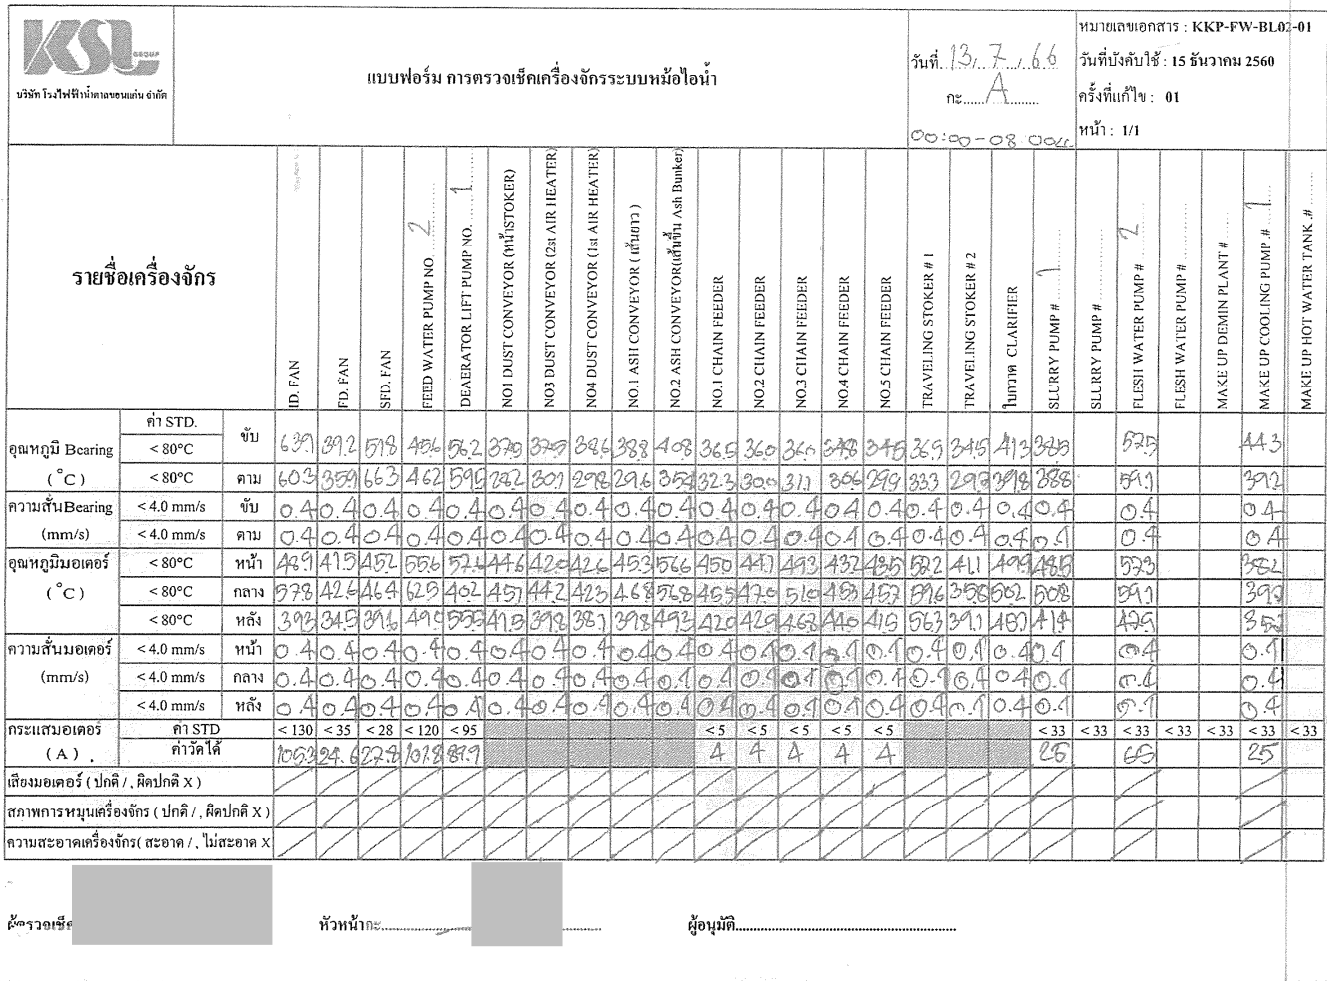 KSL GROUP
บริษัท โรงไฟฟ้าน้ำตาลขอนแก่น จำกัด
แบบฟอร์ม การตรวจเช็คเครื่องจักรระบบหม้อไอน้ำ
วันที่ 13, 7, 66
กะ A
00:00-08.00
หมายเลขเอกสาร : KKP-FW-BL02-01
วันที่บังคับใช้ : 15 ธันวาคม 2560
ครั้งที่แก้ไข : 01
หน้า : 1/1
รายชื่อเครื่องจักร
ID. FAN
FD. FAN
SFD. FAN
FEED WATER PUMP NO. 2
DEAERATOR LIFT PUMP NO. 1
NO1 DUST CONVEYOR (หน้าSTOKER)
NO3 DUST CONVEYOR (2st AIR HEATER)
NO4 DUST CONVEYOR (1st AIR HEATER)
NO.1 ASH CONVEYOR ( เส้นยาว )
NO.2 ASH CONVEYOR(เส้นขึ้น Ash Bunker)
NO.1 CHAIN FEEDER
NO.2 CHAIN FEEDER
NO.3 CHAIN FEEDER
NO.4 CHAIN FEEDER
NO.5 CHAIN FEEDER
TRAVELING STOKER # 1
TRAVELING STOKER # 2
ใบกวาด CLARIFIER
SLURRY PUMP # 1
SLURRY PUMP #
FLESH WATER PUMP # 2
FLESH WATER PUMP #
MAKE UP DEMIN PLANT #
MAKE UP COOLING PUMP .# 1
MAKE UP HOT WATER TANK .#
ค่า STD.
อุณหภูมิ Bearing < 80°C ขับ 63.9 39.2 51.8 45.6 56.2 38.8 40.8 36.5 36.0 36.0 34.8 34.5 36.5 34.5 41.3 38.5 57.5 44.3
(°C) < 80°C ตาม 60.3 35.9 66.3 46.2 59.5 28.2 30.1 29.8 29.6 35.4 32.3 30.0 31.1 30.6 29.9 33.3 29.3 39.8 38.8 59.1 39.2
ความสั่นBearing < 4.0 mm/s ขับ 0.4 0.4 0.4 0.4 0.4 0.4 0.4 0.4 0.4 0.4 0.4 0.4 0.4 0.4 0.4 0.4 0.4 0.4 0.4 0.4 0.4
(mm/s) < 4.0 mm/s ตาม 0.4 0.4 0.4 0.4 0.4 0.4 0.4 0.4 0.4 0.4 0.4 0.4 0.4 0.4 0.4 0.4 0.4 0.4 0.4 0.4 0.4
อุณหภูมิมอเตอร์ < 80°C หน้า 48.9 41.5 45.2 55.6 57.6 44.6 42.0 42.6 45.3 56.6 45.0 44.1 49.3 43.2 48.5 52.2 41.1 49.9 48.5 57.3 38.2
(°C) < 80°C กลาง 57.8 42.6 46.4 62.5 40.2 45.7 44.2 42.3 46.8 56.8 45.5 47.0 51.0 45.3 45.7 59.6 35.8 50.2 50.8 59.1 39.7
< 80°C หลัง 39.3 34.5 39.6 49.0 55.5 41.5 39.8 38.1 39.8 49.3 42.0 42.9 46.8 44.0 41.5 56.3 39.1 45.7 41.4 47.5 35.2
ความสั่นมอเตอร์ < 4.0 mm/s หน้า 0.4 0.4 0.4 0.4 0.4 0.4 0.4 0.4 0.4 0.4 0.4 0.4 0.4 0.4 0.4 0.4 0.4 0.4 0.4 0.4 0.4
(mm/s) < 4.0 mm/s กลาง 0.4 0.4 0.4 0.4 0.4 0.4 0.4 0.4 0.4 0.4 0.4 0.4 0.4 0.4 0.4 0.4 0.4 0.4 0.4 0.4 0.4
< 4.0 mm/s หลัง 0.4 0.4 0.4 0.4 0.4 0.4 0.4 0.4 0.4 0.4 0.4 0.4 0.4 0.4 0.4 0.4 0.4 0.4 0.4 0.4 0.4
กระแสมอเตอร์ ค่า STD < 130 < 35 < 28 < 120 < 95 < 5 < 5 < 5 < 5 < 5 < 33 < 33 < 33 < 33 < 33 < 33 < 33
(A) . ค่าวัดได้ 105.3 24.6 27.8 101.8 87.9 4 4 4 4 4 25 65 25
เสียงมอเตอร์ ( ปกติ / , ผิดปกติ X ) / / / / / / / / / / / / / / / / / / / / / / / /
สภาพการหมุนเครื่องจักร ( ปกติ / , ผิดปกติ X ) / / / / / / / / / / / / / / / / / / / / / / / /
ความสะอาดเครื่องจักร( สะอาด / , ไม่สะอาด X / / / / / / / / / / / / / / / / / / / / / / / /
ผู้ตรวจเช็ค
หัวหน้ากะ
ผู้อนุมัติ